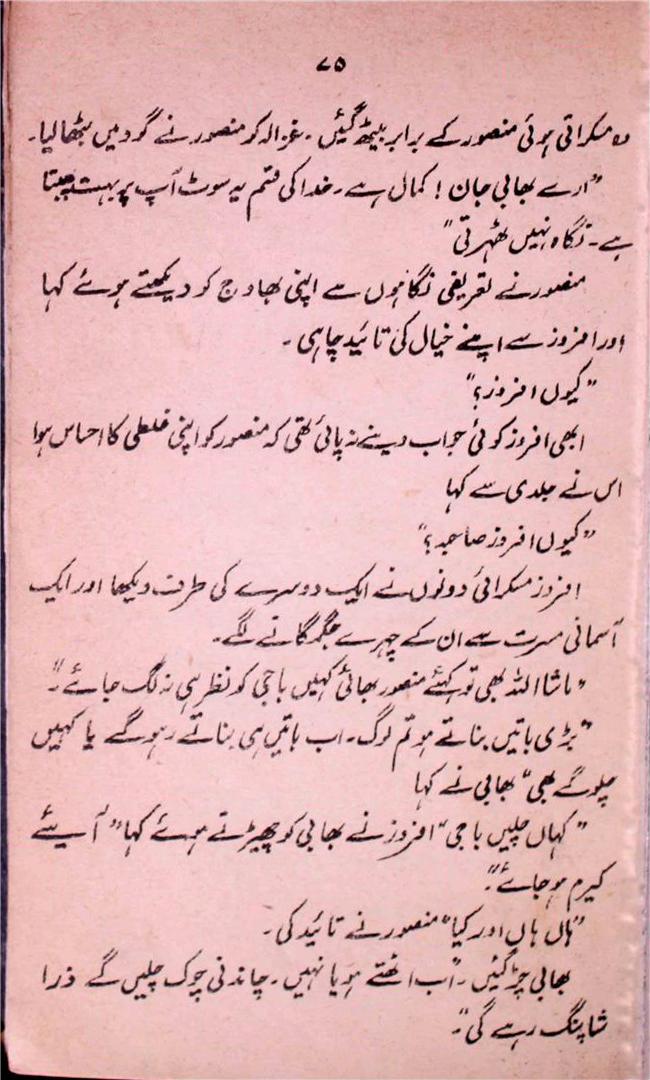 ۷۵
وہ مسکراتی ہوئی منصور کے برابر بیٹھ گئیں ۔ غزالہ کو منصور نے گود میں بٹھا لیا۔
”ارے بھابی جان ! کمال ہے ۔ خدا کی قسم یہ سوٹ آپ پر بہت جچتا
ہے ۔ نگاہ نہیں ٹھہرتی“
منصور نے تعریفی نگاہوں سے اپنی بھاوج کو دیکھتے ہوئے کہا
اور افروز سے اپنے خیال کی تائید چاہی ۔
”کیوں افروز؟“
ابھی افروز کوئی جواب دینے نہ پائی تھی کہ منصور کو اپنی غلطی کا احساس ہوا
اس نے جلدی سے کہا
”کیوں افروز صاحبہ؟“
افروز مسکرائی دونوں نے ایک دوسرے کی طرف دیکھا اور ایک
آسمانی مسرت سے ان کے چہرے جگمگانے لگے۔
”ماشااللہ بھی تو کہئے منصور بھائی کہیں باجی کو نظر ہی نہ لگ جائے“۔
”بڑی باتیں بناتے ہو تم لوگ۔ اب باتیں ہی بناتے رہو گے یا کہیں
چلو گے بھی“ بھابی نے کہا
”کہاں چلیں باجی“ افروز نے بھابی کو چھیڑتے ہوئے کہا ”آیئے
کیرم ہو جائے“۔
”ہاں ہاں اور کیا“ منصور نے تائید کی ۔
بھابی چڑ گئیں ۔ ”اب اٹھتے ہو یا نہیں ۔ چاندنی چوک چلیں گے ذرا
شاپنگ رہے گی“۔